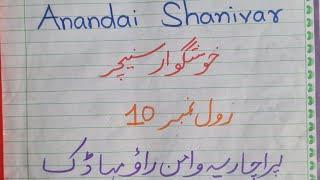 Anandai Shanivar
خوشگوار سنیچر
رول نمبر 10
پراچاریہ وامن راؤ مہاڈک